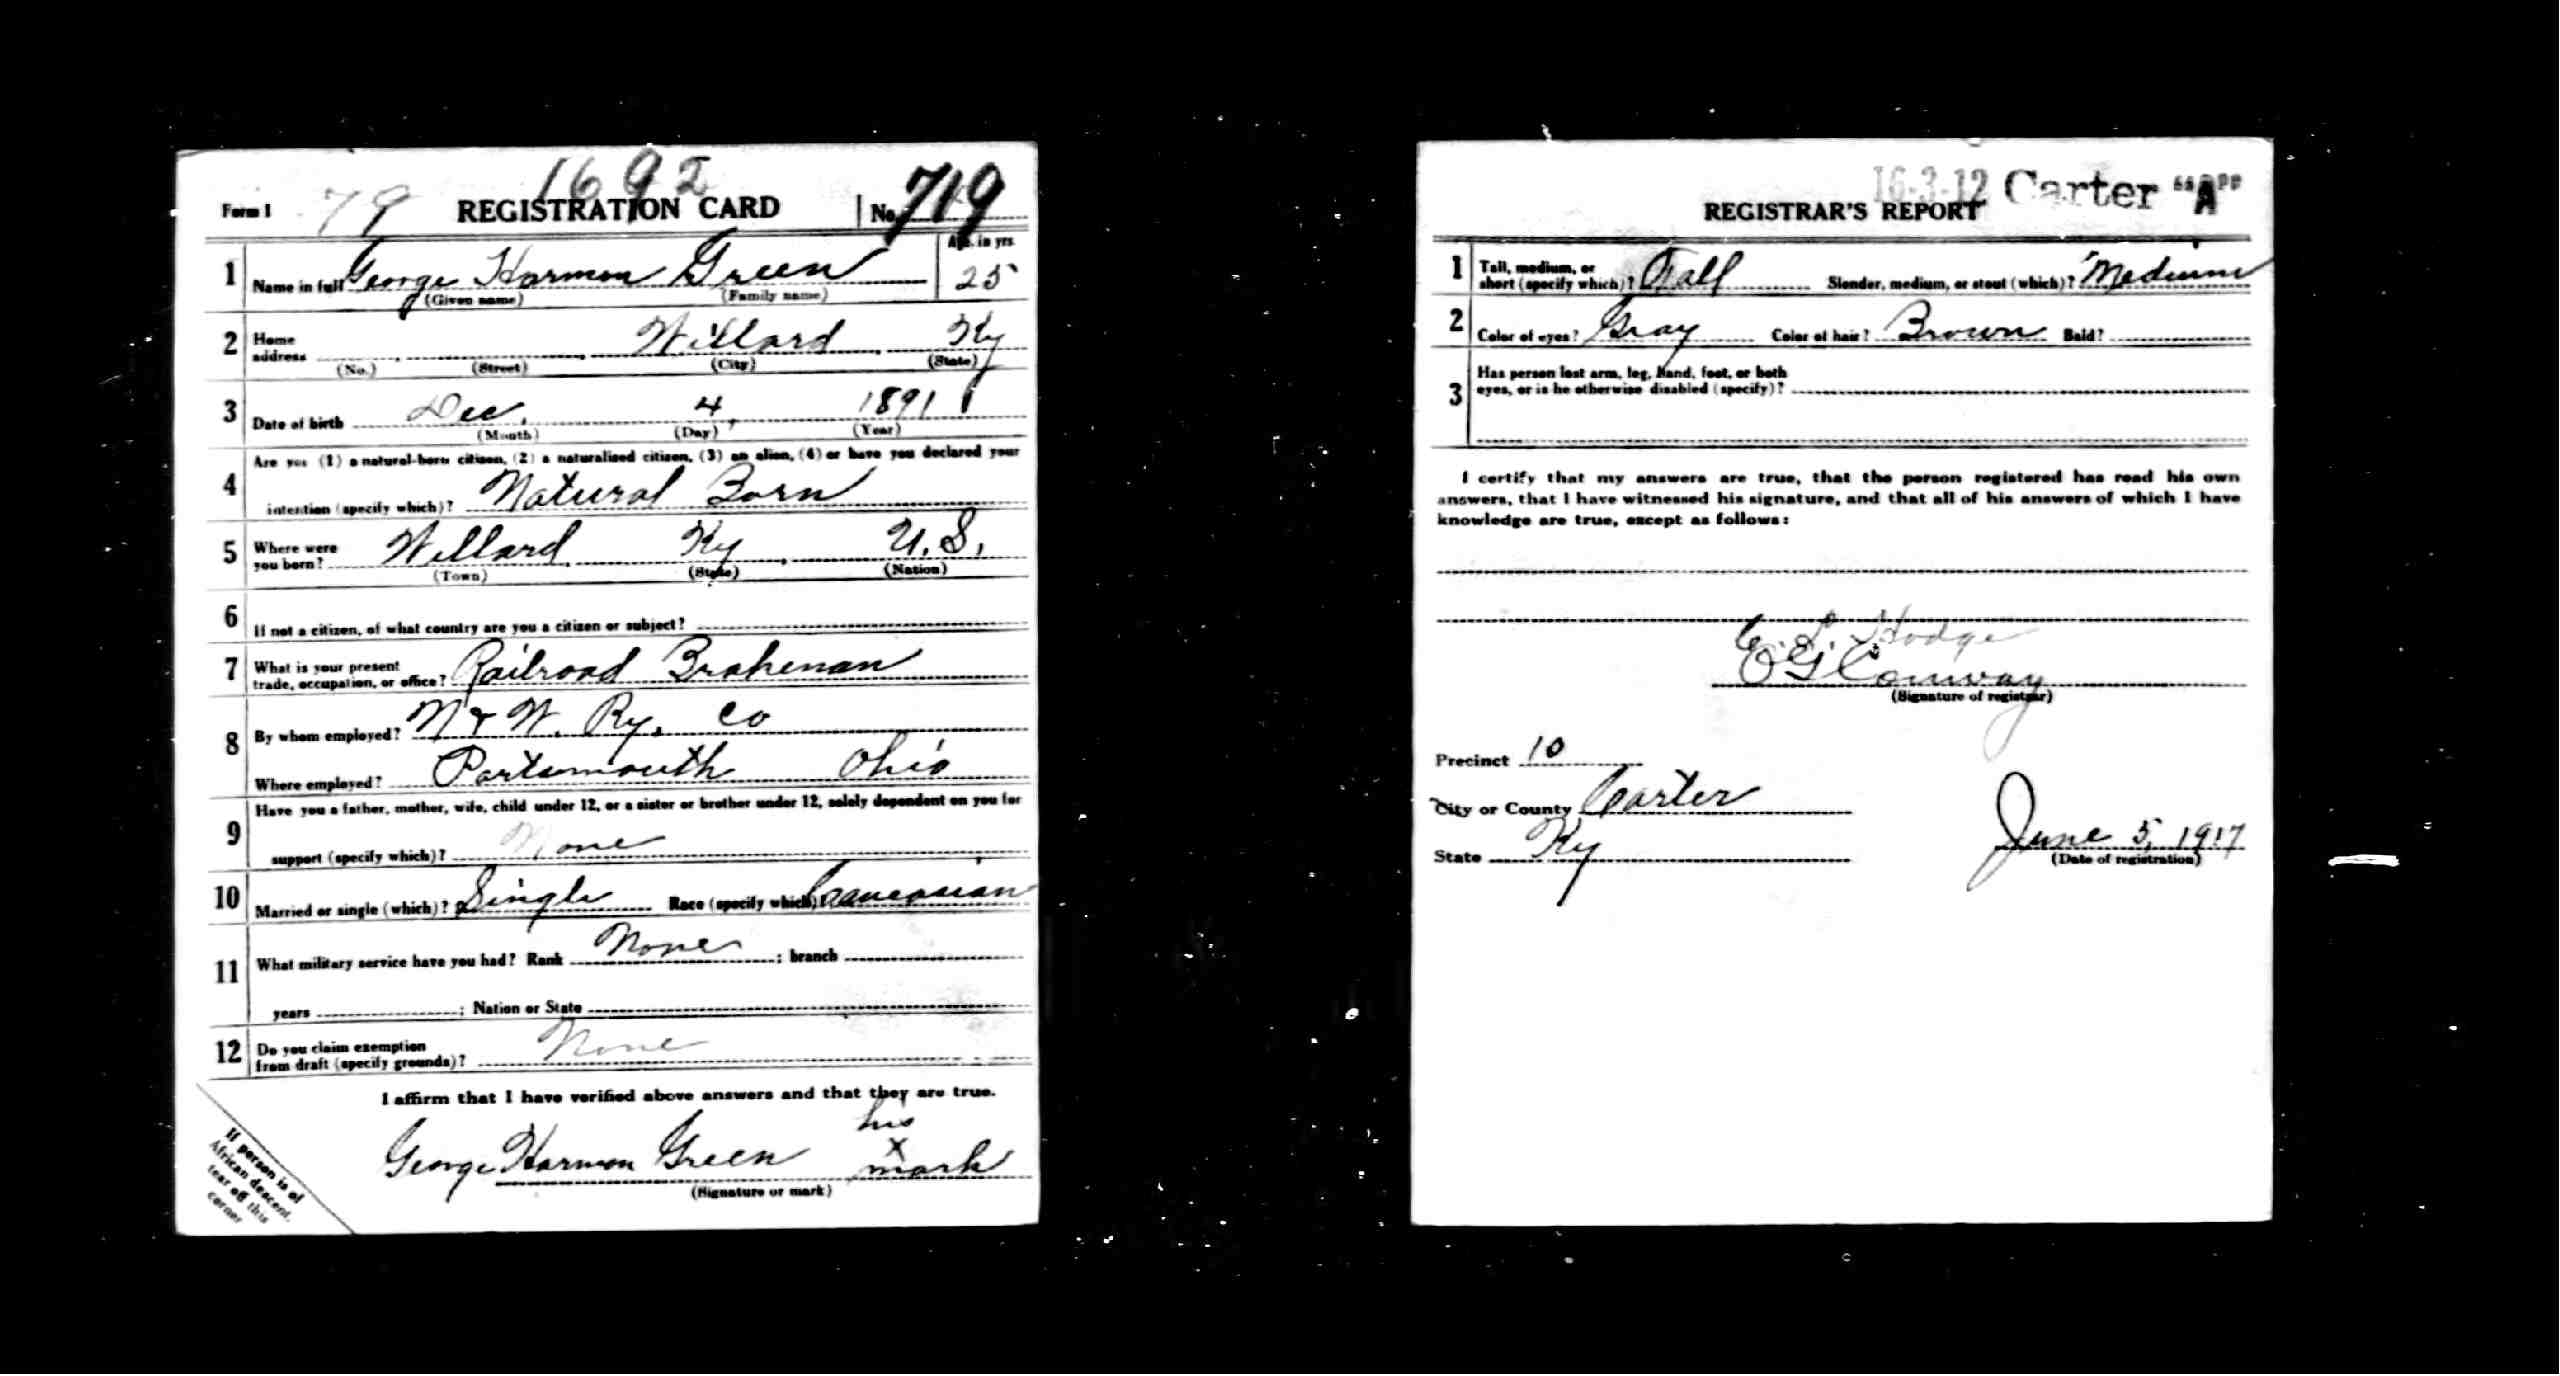 1692
Form 1 79 REGISTRATION CARD No. 719
1 Name in full George Harmon Green Age, in yrs 25
(Given name) (Family name)
2 Home address Willard Ky
(No.) (Street) (City) (State)
3 Date of birth Dec, 4, 1891
(Month) (Day) (Year)
4 Are you (1) a natural-born citizen, (2) a naturalized citizen, (3) an alien, (4) or have you declared your
intention (specify which)? Natural Born
5 Where were you born? Willard Ky, U.S.
(Town) (State) (Nation)
6 If not a citizen, of what country are you a citizen or subject?
7 What is your present trade, occupation, or office? Railroad Brakeman
8 By whom employed? N & W. Ry. Co
Where employed? Portsmouth Ohio
9 Have you a father, mother, wife, child under 12, or a sister or brother under 12, solely dependent on you for
support (specify which)? None
10 Married or single (which)? Single Race (specify which) Caucasian
11 What military service have you had? Rank None ; branch
years ; Nation or State
12 Do you claim exemption from draft (specify grounds)? None
I affirm that I have verified above answers and that they are true.
his
George Harmon Green x
mark
(Signature or mark)
If person is of
African descent,
tear off this
corner
16-3-12 Carter "A"
REGISTRAR'S REPORT
1 Tall, medium, or short (specify which)? Tall Slender, medium, or stout (which)? Medium
2 Color of eyes? Gray Color of hair? Brown Bald?
3 Has person lost arm, leg, hand, foot, or both
eyes, or is he otherwise disabled (specify)?
I certify that my answers are true, that the person registered has read his own
answers, that I have witnessed his signature, and that all of his answers of which I have
knowledge are true, except as follows:
Hodge
Conway
(Signature of registrar)
Precinct 10
City or County Carter
State Ky June 5, 1917
(Date of registration)